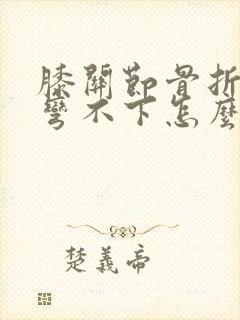 膝關節骨折
彎不下怎麼
楚義帝